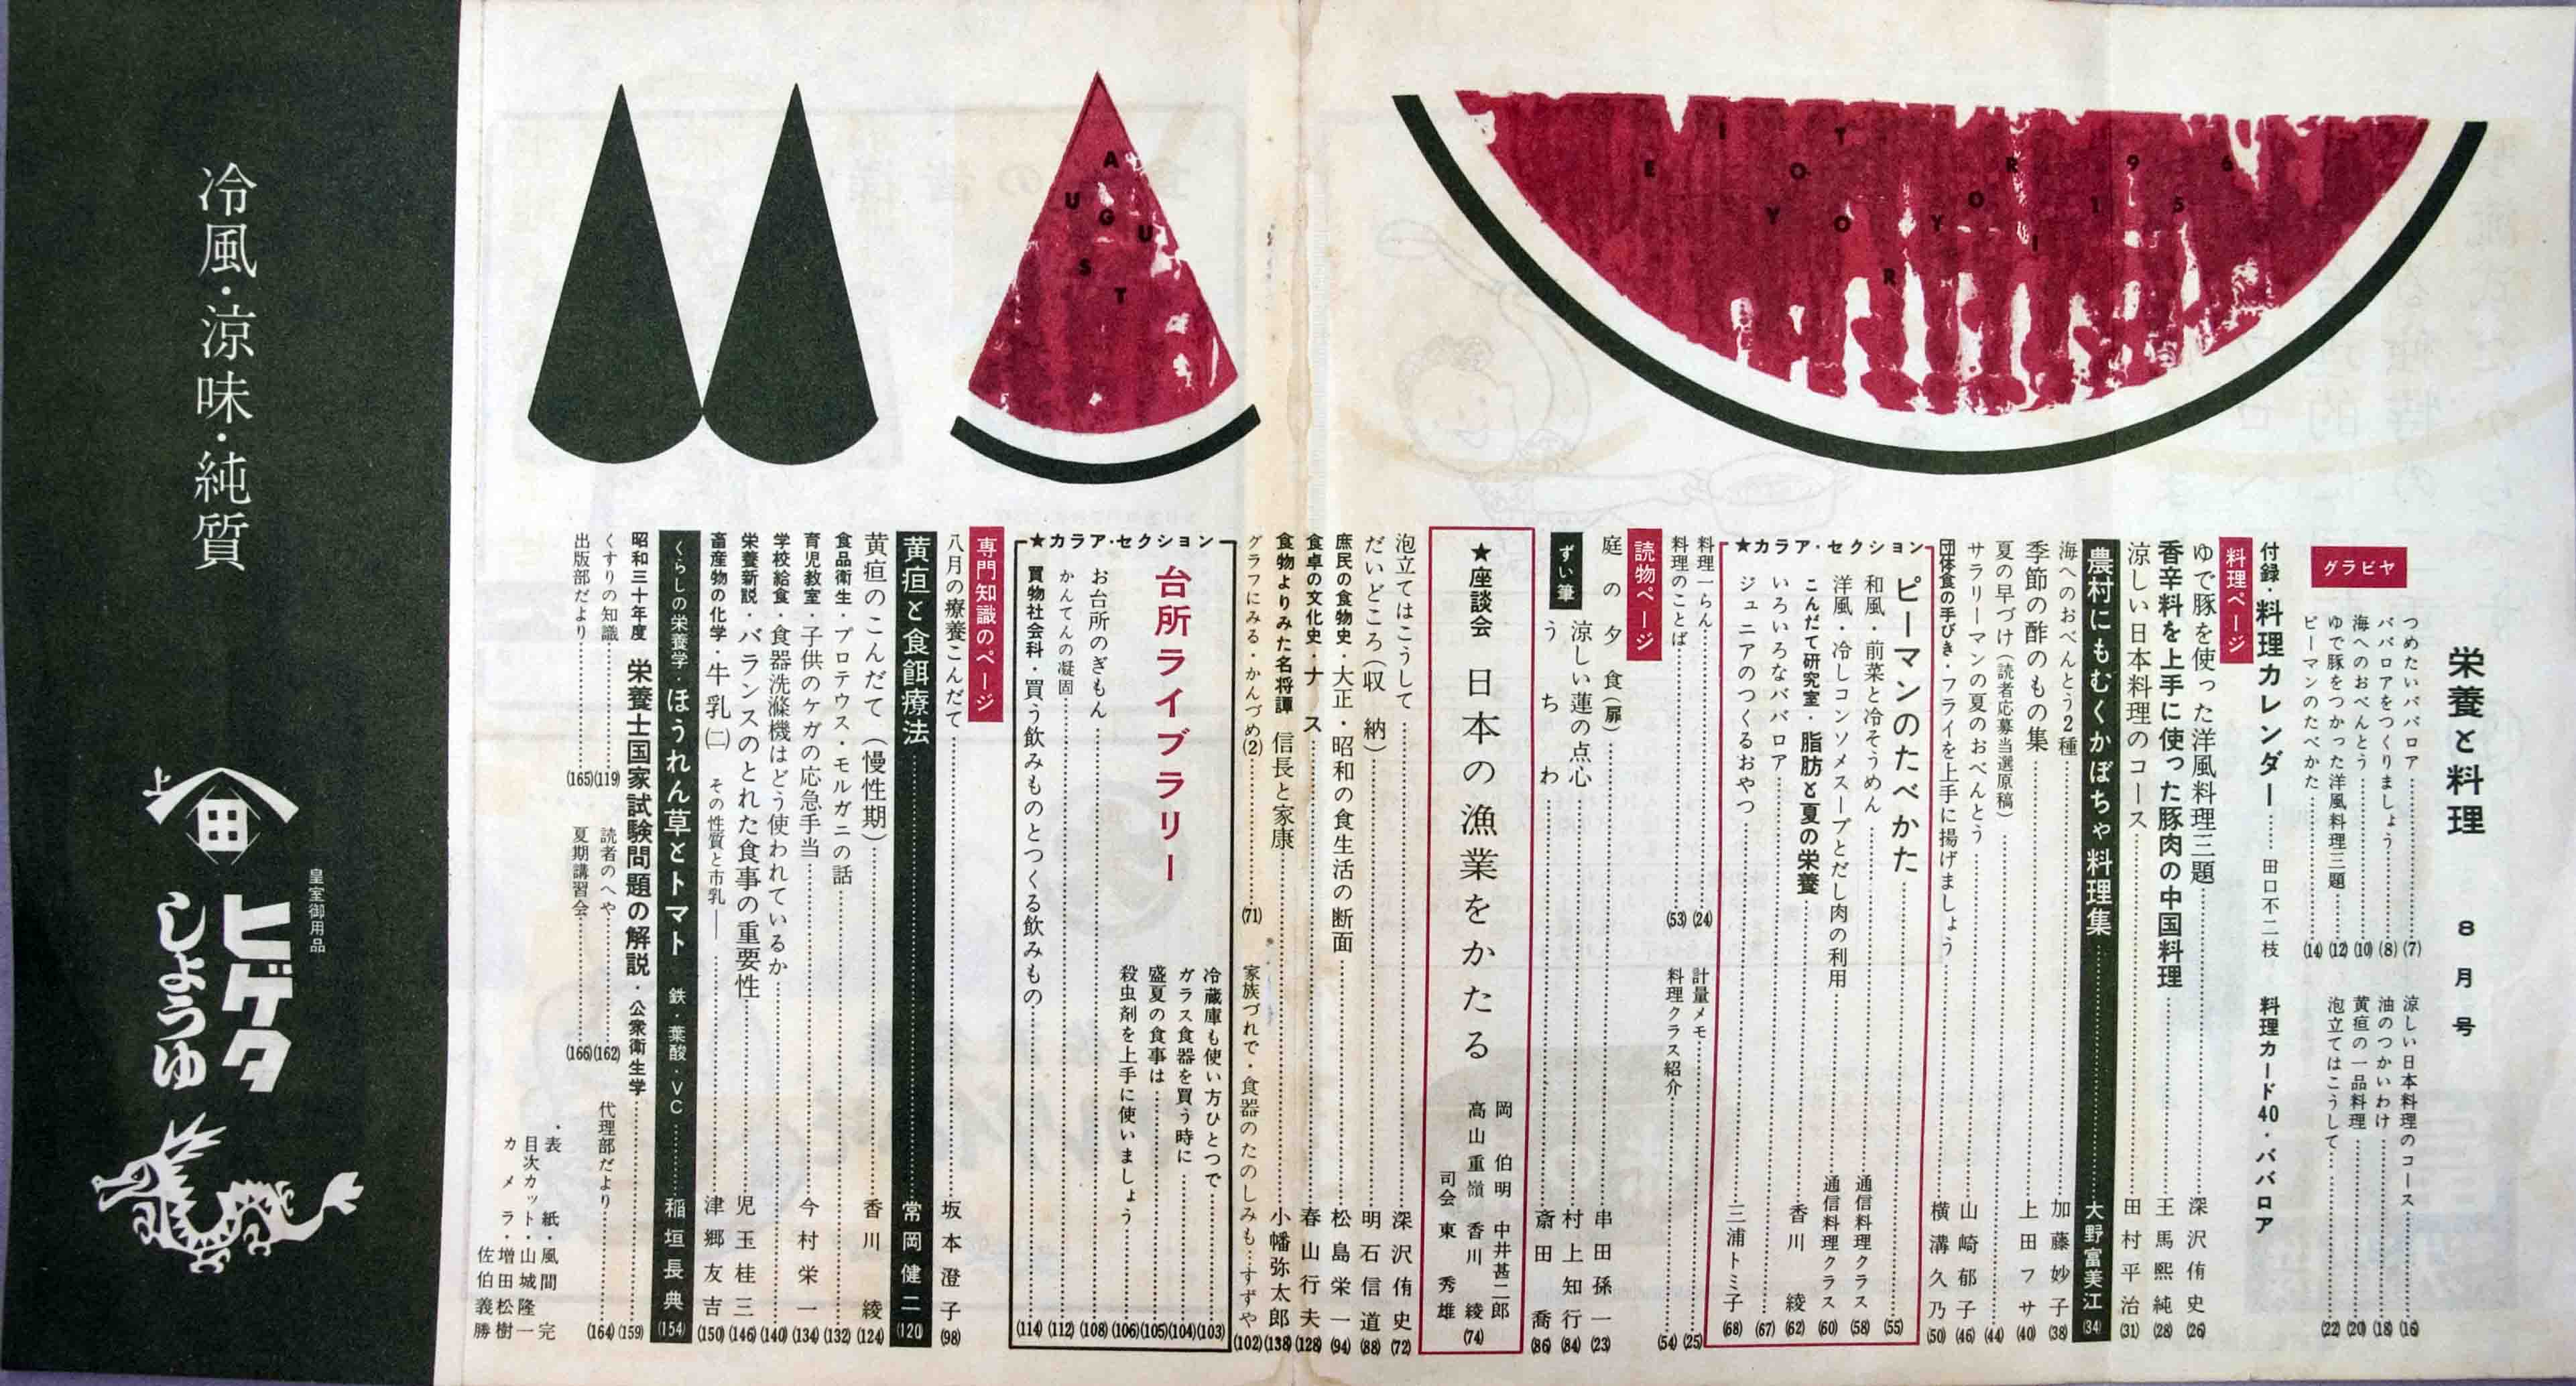 EIYO TO RYORI 1956
AUGUST
栄養と料理 8月号
グラビヤ
つめたいババロア (7)
ババロアをつくりましょう (8)
海へのおべんとう (10)
ゆで豚をつかった洋風料理三題 (12)
ピーマンのたべかた (14)
涼しい日本料理のコース (16)
油のつかいわけ (18)
黄疸の一品料理 (20)
泡立てはこうして (22)
付録・料理カレンダー 田口不二枝 料理カード40・ババロア
料理ページ
ゆで豚を使った洋風料理三題 深沢侑史 (26)
香辛料を上手に使った豚肉の中国料理 王馬熙純 (28)
涼しい日本料理のコース 田村平治 (31)
農村にもむくかぼちゃ料理集 大野富美江 (34)
海へのおべんとう2種 加藤妙子 (38)
季節の酢のもの集 上田フサ (40)
夏の早づけ(読者応募当選原稿) (44)
サラリーマンの夏のおべんとう 山崎郁子 (46)
団体食の手びき・フライを上手に揚げましょう 横溝久乃 (50)
★カラア・セクション
ピーマンのたべかた (55)
和風・前菜と冷そうめん 通信料理クラス (58)
洋風・冷しコンソメスープとだし肉の利用 通信料理クラス (60)
こんだて研究室・脂肪と夏の栄養 香川綾 (62)
いろいろなババロア (67)
ジュニアのつくるおやつ 三浦トミ子 (68)
料理一らん (24)
料理のことば (53)
計量メモ (25)
料理クラス紹介 (54)
読物ページ
庭の夕食(扉) 串田孫一 (23)
ずい筆
涼しい蓮の点心 村上知行 (84)
うちわ 斎田喬 (86)
★座談会 日本の漁業をかたる 岡伯明 中井甚二郎 高山重嶺 香川綾 司会 東秀雄 (74)
泡立てはこうして 深沢侑史 (72)
だいどころ(収納) 明石信道 (88)
庶民の食物史・大正・昭和の食生活の断面 松島栄一 (94)
食卓の文化史・ナス 春山行夫 (128)
食物よりみた名将譚 信長と家康 小幡弥太郎 (138)
グラフにみる・かんづめ(2) (71)
家族づれで・食器のたのしみも…すずや (102)
★カラア・セクション
台所ライブラリー
冷蔵庫も使い方ひとつで (103)
ガラス食器を買う時に (104)
盛夏の食事は (105)
殺虫剤を上手に使いましょう (106)
お台所のぎもん (108)
かんてんの凝固 (112)
買物社会科・買う飲みものとつくる飲みもの (114)
専門知識のページ
八月の療養こんだて 坂本澄子 (98)
黄疸と食餌療法 常岡健二 (120)
黄疸のこんだて(慢性期) 香川綾 (124)
食品衛生・プロテウス・モルガニの話 (132)
育児教室・子供のケガの応急手当 今村栄一 (134)
学校給食・食器洗滌機はどう使われているか (140)
栄養新説・バランスのとれた食事の重要性 児玉桂三 (146)
畜産物の化学・牛乳(二) その性質と市乳― 津郷友吉 (150)
くらしの栄養学・ほうれん草とトマト 鉄・葉酸・VC 稲垣長典 (154)
昭和三十年度 栄養士国家試験問題の解説・公衆衛生学 (159)
くすりの知識 (119)
読者のへや (162)
代理部だより (164)
出版部だより (165)
夏期講習会 (166)
・表紙・風間完
目次カット・山城隆一
カメラ・増田松樹
佐伯義勝
冷風・涼味・純質
皇室御用品
上
田
ヒゲタ
しょうゆ